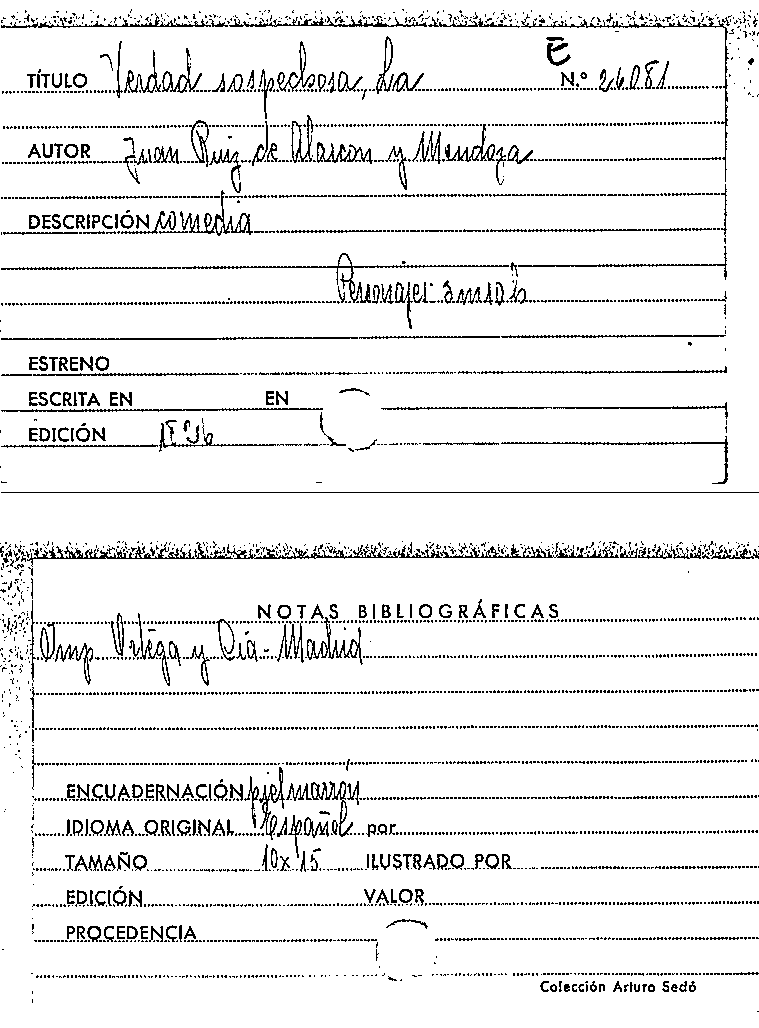 E
TÍTULO Verdad sospechosa, La N.º 26081
AUTOR Juan Ruiz de Alarcon y Mendoza
DESCRIPCIÓN comedia
Personajes:
ESTRENO
ESCRITA EN EN
EDICIÓN
NOTAS BIBLIOGRÁFICAS
Imp. Ortega y Cía - Madrid
ENCUADERNACIÓN piel marrón
IDIOMA ORIGINAL Español por
TAMAÑO 10x15 ILUSTRADO POR
EDICIÓN VALOR
PROCEDENCIA
Colección Arturo Sedó